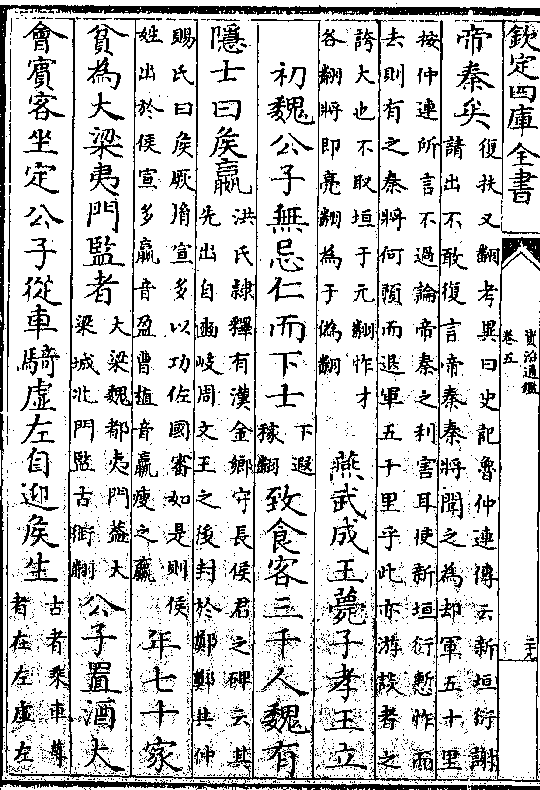 欽定四庫全書
資治通鑑
卷五
帝秦矣
復扶又翻考異曰史記魯仲連傳云新垣衍謝
請出不敢復言帝秦秦將聞之為却軍五十里
按仲連所言不過論帝秦之利害耳使新垣衍慙怍而
去則有之秦將何預而退軍五十里乎此亦游談者之
誇大也不取垣于元翻怍才
各翻將即亮翻為于偽翻
燕武成王薨子孝王立
初魏公子無忌仁而下士
下遐
稼翻
致食客三千人魏有
隱士曰矦嬴
洪氏隸釋有漢金鄉守長侯君之碑云其
先出自豳岐周文王之後封於鄭鄭共仲
賜氏曰矦厥胤宣多以功佐國審如是則侯
姓出於侯宣多嬴音盈曹植音羸瘦之羸
年七十家
貧為大梁夷門監者
大梁魏都夷門葢大
梁城北門監古銜翻
公子置酒大
會賓客坐定公子從車騎虛左自迎矦生
古者乘車尊
者在左虛左